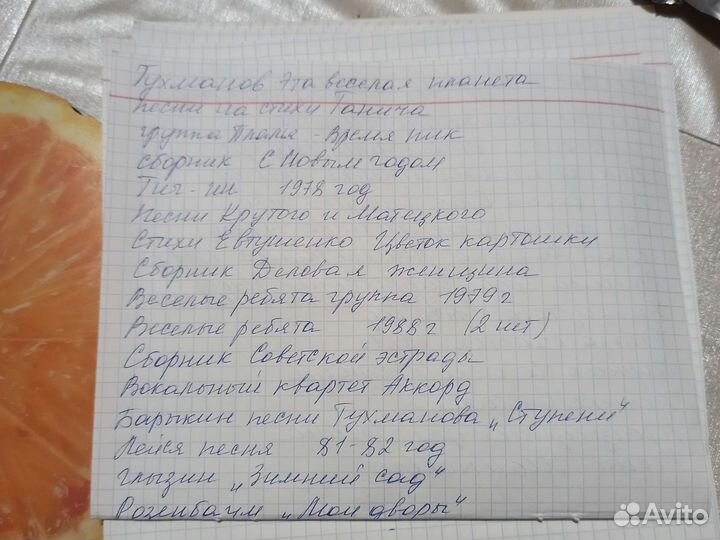 Тухманов Эта веселая планета
песни на стихи Танича
группа Пламя - Время пик
сборник С Новым годом
1978 год
Песни Крутого и Матецкого
Стихи Евтушенко Цветок картошки
Сборник Деловая женщина
Веселые ребята группа 1979 г
Веселые ребята 1988 г (2 шт)
Сборник Советской эстрады
Вокальный квартет Аккорд
Барыкин песни Тухманова „Ступени"
Лейся песня 81-82 год
Глызин „Зимний сад"
Розенбаум „Мои дворы"
Avito